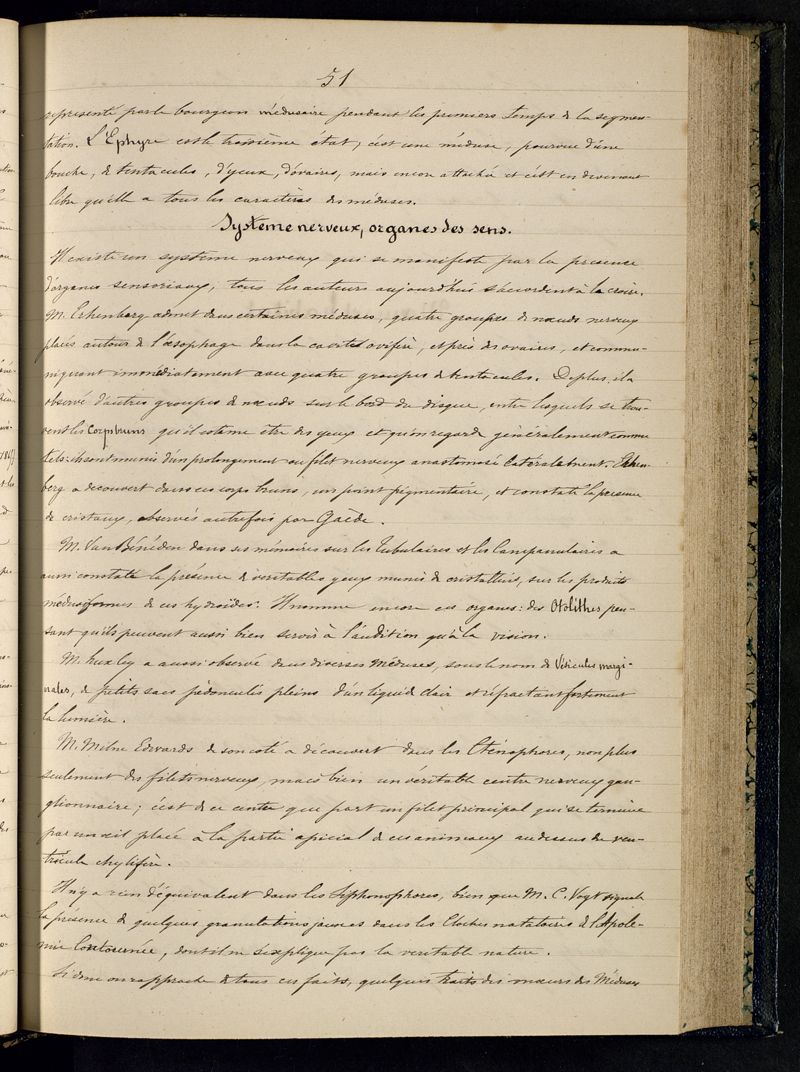 51
représenté par le bourgeon médusaire pendant les premiers temps de la segmen-
tation. L'Ephyre est le troisième état; c'est une méduse, pourvue d'une
bouche, de tentacules, d'yeux, d'ovaires, mais encore attachée et c'est en devenant
libre qu'elle a tous les caractères des méduses.
Système nerveux, organes des sens.
Il existe un système nerveux qui se manifeste par la présence
d'organes sensoriaux; tous les auteurs aujourd'hui s'accordent à le croire.
M. Erhenberg admet dans certaines méduses, quatre groupes de nœuds nerveux
placés autour de l'œsophage dans la cavité ovifère, et près des ovaires, et commu-
niquant immédiatement avec quatre groupes de tentacules. De plus, il a
observé d'autres groupes de nœuds sur le bord du disque, entre lesquels se trou-
vent les Corps bruns qu'il estime être des yeux et qu'on regarde généralement comme
tels: ils sont munis d'un prolongement ou filet nerveux anastomosé latéralement. Erhen-
berg a découvert dans ces corps bruns, un point pigmentaire, et constate la présence
de cristaux, observés autrefois par Gaëde.
M. Van Bénéden dans ses mémoires sur les Tubulaires et les Campanulaires a
aussi constaté la présence de véritables yeux munis de cristallins, sur les produits
médusiformes de ces hydroïdes. Il nomme encore ces organes: des Otolithes pen-
sant qu'ils peuvent aussi bien servir à l'audition qu'à la vision.
M. Huxley a aussi observé dans diverses Méduses, sous le nom de Vésicules margi-
nales, de petits sacs pédonculés pleins d'un liquide clair et réfractant fortement
la lumière.
M. Milne Edwards de son coté a découvert dans les Cténophores, non plus
seulement des filets nerveux, mais bien un véritable centre nerveux gan-
glionnaire; c'est de ce centre que part un filet principal qui se termine
par un œil placé à la partie apicial de ces animaux au dessus du ven-
tricule chylifère.
Il n'y a rien d'équivalent dans les Siphonophores, bien que M. C. Vogt signale
la présence de quelques granulations jaunes dans les Cloches natatoires de l'Apole-
mie Contournée, dont il ne s'explique pas la véritable nature.
Si donc on rapproche de tous ces faits, quelques traits des mœurs des Méduses